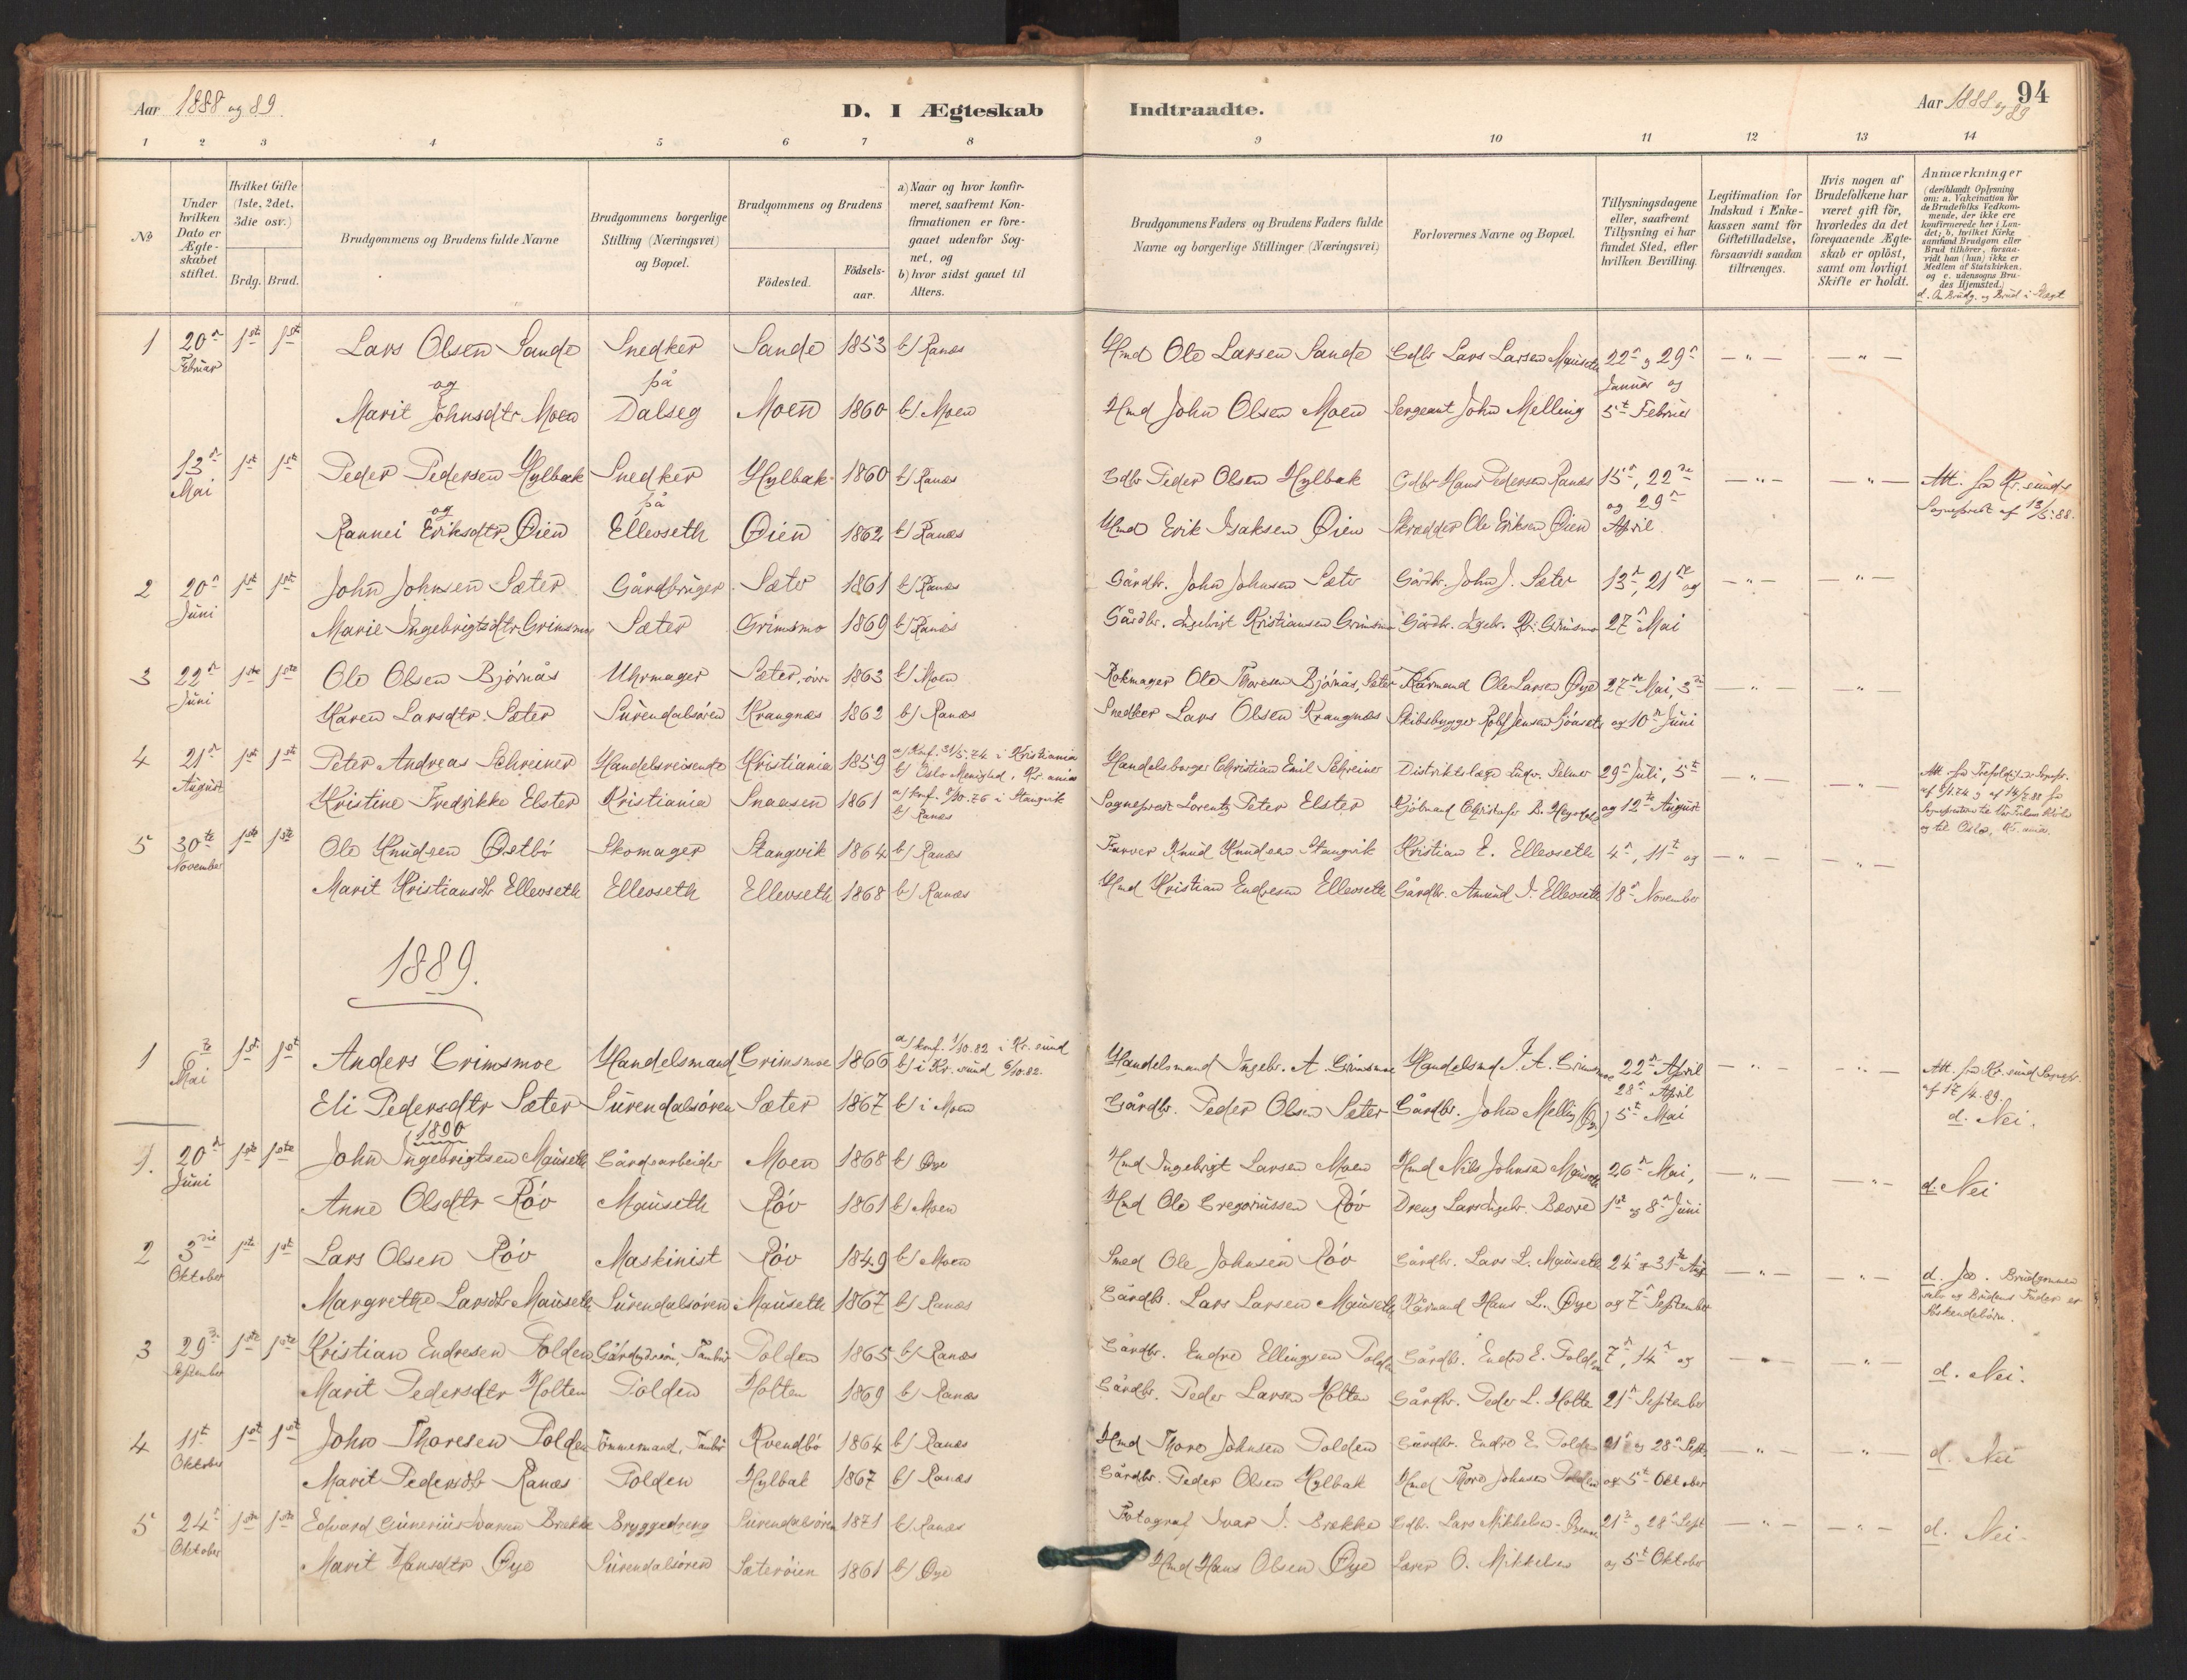 Aar 1888 og 89.
D. I Ægteskab
Indtraadte.
Aar 1888 og 89
94
1 2 3 4 5 6 7 8
9 10 11 12 13 14
No
Under hvilken Dato er Ægteskabet stiftet.
Hvilket Gifte (1ste, 2det, 3die osv.)
Brdg. Brud.
Brudgommens og Brudens fulde Navne
Brudgommens borgerlige Stilling (Næringsvei) og Bopæl.
Brudgommens og Brudens
Födested.
Födselsaar.
a) Naar og hvor konfirmeret, saafremt Konfirmationen er foregaaet udenfor Sognet, og
b) hvor sidst gaaet til Alters.
Brudgommens Faders og Brudens Faders fulde Navne og borgerlige Stillinger (Næringsvei)
Forlovernes Navne og Bopæl.
Tillysningsdagene eller, saafremt Tillysning ei har fundet Sted, efter hvilken Bevilling.
Legitimation for Indskud i Enkekassen samt for Giftetilladelse, forsaavidt saadan tiltrænges.
Hvis nogen af Brudefolkene har været gift för, hvorledes da det foregaaende Ægteskab er oplöst, samt om lovligt Skifte er holdt.
Anmærkninger
(deriblandt Oplysning om: a. Vakcination for de Brudefolks Vedkommende, der ikke ere konfirmerede her i Landet; b. hvilket Kirkesamfund Brudgom eller Brud tilhörer, forsaavidt han (hun) ikke er Medlem af Statskirken, og c. udensogns Brudes Hjemsted.)
d. Om Brudg. og Brud i Slægt
1 20de 1ste 1ste Lars Olsen Sande Snedker Sande 1853 b) Ranæs Hmd Ole Larsen Sande Gdbr Lars Larsen Mauseth 22de og 29de
Februar og på Januar og
Marit Johnsdtr Moen Dalseg Moen 1860 b) Moen Hmd John Olsen Moen Sergeant John Melling 5te Februar
13de 1ste 1ste Peder Pedersen Hylbak Snedker Hylbak 1860 b) Ranæs Gdbr Peder Olsen Hylbak Gdbr Hans Pedersen Ranæs 15de, 22de Att. fra Kr.sunds
Mai og på og 29de Sognepræst af 13/5.88.
Rannei Eriksdtr Øien Ellevseth Øien 1862 b) Ranæs Hmd Erik Isaksen Øien Skrædder Ole Eriksen Øien April
2 20de 1ste 1ste John Johnsen Sæter Gårdbruger Sæter 1861 b) Ranæs Gårdbr. John Johnsen Sæter Gårdbr. John J. Sæter 13de, 21de og
Juni Marie Ingebrigtsdtr Grimsmo Sæter Grimsmo 1869 b) Ranæs Gårdbr. Ingebrigt Kristiansen Grimsmo Gårdbr. Ingebr. Kr. Grimsmo 27de Mai
3 22de 1ste 1ste Ole Olsen Bjørnås Uhrmager Sæter, øvre 1863 b) Moen Rokmager Ole Thoresen Bjørnås, Sæter Kårmand Ole Larsen Øye 27de Mai, 3de
Juni Karen Larsdtr. Sæter Surendalsøren Krangnæs 1862 b) Ranæs Snedker Lars Olsen Krangnæs Skibsbygger Jensen og 10de Juni
4 21de 1ste 1ste Peter Andreas Schreiner Handelsreisende Kristiania 1859 a) Konf. 31/5.74 i Kristiania
b) Oslo Menighed, Kr.ania Handelsborger Christian Emil Schreiner Distriktslæge Ludv. Selmer 29de Juli, 5te
August Kristine Fredrikke Elster Kristiania Snaasen 1861 a) konf. 8/10.76 i Stangvik
b) Ranæs Sogneprest Lorentz Peter Elster Kjøbmand Christofer B. og 12te August
og til Oslo, Kr.ania.
5 30te 1ste 1ste Ole Knudsen Østbø Skomager Stangvik 1864 b) Ranæs Farver Knud Knudsen Stangvik Kristian E. Ellevseth 4de, 11te og
November Marit Kristiansdtr Ellevseth Ellevseth Ellevseth 1868 b) Ranæs Hmd Kristian Endresen Ellevseth Gårdbr. Amund J. Ellevseth 18de November
1889.
1 6te 1ste 1ste Anders Grimsmoe Handelsmand Grimsmoe 1866 a) konf. 1/10.82 i Kr.sund
b) i Kr.sund 6/10.82. Handelsmand Ingebr. A. Grimsmoe Handelsmd I. A. Grimsmoe 22de April Att. fra Kr.sund Sognepr.
Mai 28de April af 17/4.89.
Eli Pedersdtr Sæter Surendalsøren Sæter 1867 b) i Moen Gårdbr. Peder Olsen Sæter Gårdbr. John Melling 5te Mai d. Nei.
1890
1. 20de 1ste 1ste John Ingebrigtsen Mauseth Gårdsarbeider Moen 1868 b) Øye Hmd Ingebrigt Larsen Moen Hmd Nils Johnsen Mauseth 26de Mai,
Juni Anne Olsdtr Røv Mauseth Røv 1861 b) Moen Hmd Ole Gregoriussen Røv Dreng Lars Ingebr. Bævre 1ste og 8de Juni d. Nei
2 3die 1ste 1ste Lars Olsen Røv Maskinist Røv 1849 b) Moen Smed Ole Johnsen Røv Gårdbr. Lars L. Mauseth 24de og 31te Aug.
Oktober d. Ja. Brudgommen
Margrethe Larsdtr Mauseth Surendalsøren Mauseth 1867 b) Ranæs Gårdbr. Lars Larsen Mauseth Kårmand Hans L. Øye og 7de September selv og Brudens Fader er
Søskendebørn.
3 29de 1ste 1ste Kristian Endresen Polden Polden 1865 b) Ranæs Gårdbr. Endre Ellingsen Polden Gårdbr. Endre E. Polden 7de, 14de og
September Marit Pedersdtr Holten Polden Holten 1869 b) Ranæs Gårdbr. Peder Larsen Holten Gårdbr. Peder L. Holten 21de September d. Nei.
4 11te 1ste 1ste John Thoresen Polden Tømmermand, Kvendbø 1864 b) Ranæs Hmd Thore Johnsen Polden Gårdbr. Endre E. Polden 21de og 28de Sept.
Oktober Marit Pedersdtr Ranæs Polden Hylbak 1867 b) Ranæs Gårdbr. Peder Olsen Hylbak Hmd Thore Johnsen Polden og 5te Oktober d. Nei
5 24de 1ste 1ste Edvard Gunerius Ivarsen Brække Bryggedreng Surendalsøren 1871 b) Ranæs Fotograf Ivar J. Brække Gdb. Lars Mikkelsen 21de og 28de Sept
Oktober Marit Hansdtr Øye Surendalsøren Sæterøien 1861 b) Øye Hmd Hans Olsen Øye Lærer O. Mikkelsen og 5te Oktober d. Nei.